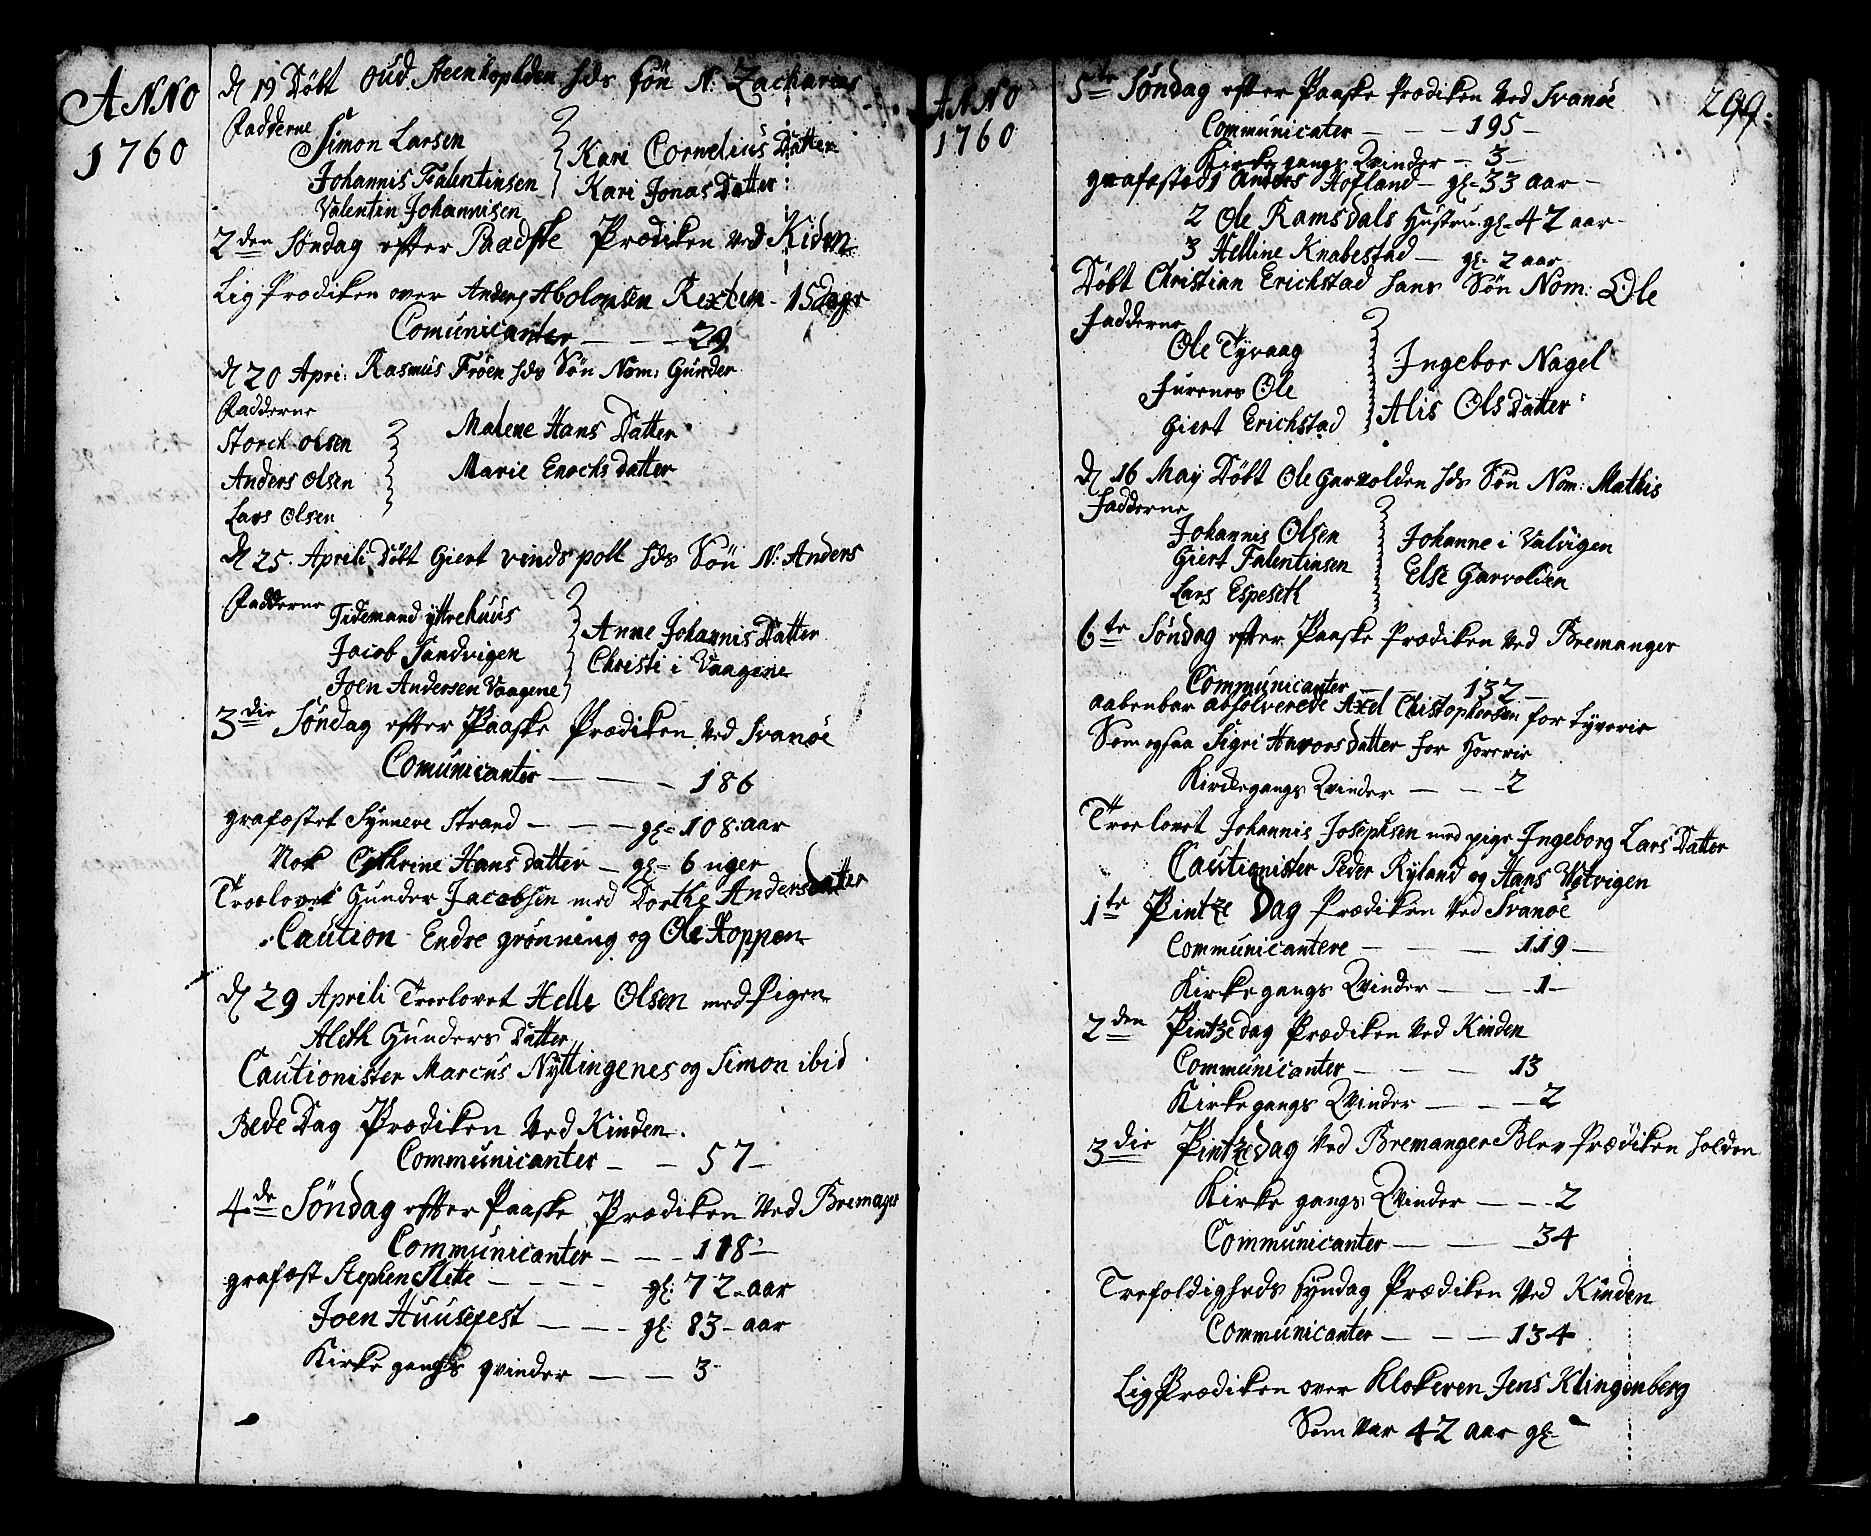 ANNO
1760
d 19 Döbt Oud Steenhopfden hds Sön N: Zacharias
Fadderne
Simon Larsen
Johannis Falentinsen
Valentin Johannisen
Kari Cornelius Datter
Kari Jonas Datter
2den Söndag efter Paadske Prædiken ved Kiden
Lig Prædiken over Anders Abolonsen Rexten - 15 dage
Comunicanter - - 29
d 20 Apri: Rasmus Fröen hds Sön Nom: Gunder
Fadderne
Storck Olsen
Anders Olsen
Lars Olsen
Malene Hans Datter
Marie Enochs datter
d 25. Aprili Döbt Giert vindspoll hds Sön N: Anders
Fadderne
Tidemand yttrehuus
Jacob Sandvigen
Joen Andersen Vaagene
Anne Johannis Datter
Christi i Vaagene
3die Söndag efter Paaske Prædiken ved Svanöe
Comunicanter - - - 186
grafæstet Synneve Strand - - - gl= 108. aar
Nok Cathrine Hans datter - gl= 6 uger
Troelovet Gunder Jacobsen med Dorthe Andersdatter
Caution Endre grönning og Ole Hoppen
d 29 Aprili Troelovet Helle Olsen med Pigen
Aleth Gunders Datter
Cautionister Marcus Nyttingenes og Simon ibid
Bede Dag Prædiken Ved Kinden.
Communicanter - - 57 -
4de Söndag efter Paaske Prædiken Ved Bremager
Communicanter - - - 118 -
grafæst Stephen Slette - - - - gl: 72 - aar
Joen Huusefest - - - gl: 83 - aar
Kirke gangs qvinder - - 3 -
ANNO
1760
299.
5te Söndag efter Paaske Prædiken Ved Svanöe
Communicater - - - 195 -
Kirke gangs Qvinder - 3 -
grafæsted 1 Anders Hofland - gl= 33 aar -
2 Ole Ramsdals Hustru gl= 42 aar -
3 Helline Knabestad - gl= 2 aar
Döbt Christian Erichstad hans Sön Nom: Ole
Fadderne
Ole Tyvaag
Furenes Ole
Giert Erichstad
Ingebor Nagel
Alis Ols Datter
d 16 May Döbt Ole Garvolden hds Sön Nom: Mathis
Fadderne
Johannis Olsen
Giert Falentinsen
Lars Espeseth
Johanne i Valvigen
Else Garvolden
6te Söndag efter Paaske Prædiken ved Bremanger
Communicanter - - 132 -
aabenbar absolverede Axel Christophersen for tyverie
Som ogsaa Sigri Havorsdatter for Horerie
Kirckegangs Qvinder - - - 2
Troelovet Johannis Josephsen med pige Ingeborg Lars Datter
Cautionister Peder Ryland og Hans Hotvigen
1te Pintze Dag Prædiken Ved Svanöe
Communicantere - - - 119 -
Kirke gangs Qvinder - - - 1 -
2den Pintzedag Prædiken Ved Kinden
Communicanter - - - 13
Kirke gangs Qvinder - - - 2
3die Pintzedag Ved Bremanger Blev Prædiken holden
Kirke gangs Qvinder - - - 2
Communicanter - - - 34
Trefoldigheds Syndag Prædiken Ved Kinden
Communicanter - - - 134
Lig Prædiken over Klokeren Jens Klingenberg
Som var 42 aar gl=